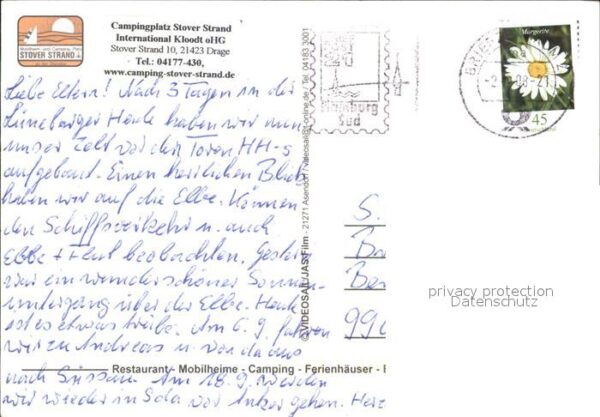 Campingplatz Stover Strand
International Kloodt oHG
Stover Strand 10, 21423 Drage
Tel.: 04177-430,
www.camping-stover-strand.de
STOVER STRAND
Margerite
45
Hamburg
Süd
Liebe Eltern! Nach 3 Tagen in der
Lüneburger Heide haben wir nun
unser Zelt vor den Toren HH-s
aufgebaut. Einen herrlichen Blick
haben wir auf die Elbe. Können
den Schiffsverkehr u. auch
Ebbe + Flut beobachten. Gestern
war ein wunderschöner Sonnen-
untergang über der Elbe. Heute
ist es etwas trübe. Am 6.9. fahren
wir zu Andreas u. von da aus
nach Süssau. Am 18.9. werden
wir wieder in Sola vor Anker gehen. Herz
© VIDEOSATUJAS/Film - 21271 Asendorf /videosat@t-online.de / Tel. 04183 3001
S.
Ba
Ber
990
privacy protection
Datenschutz
Restaurant - Mobilheime - Camping - Ferienhäuser -